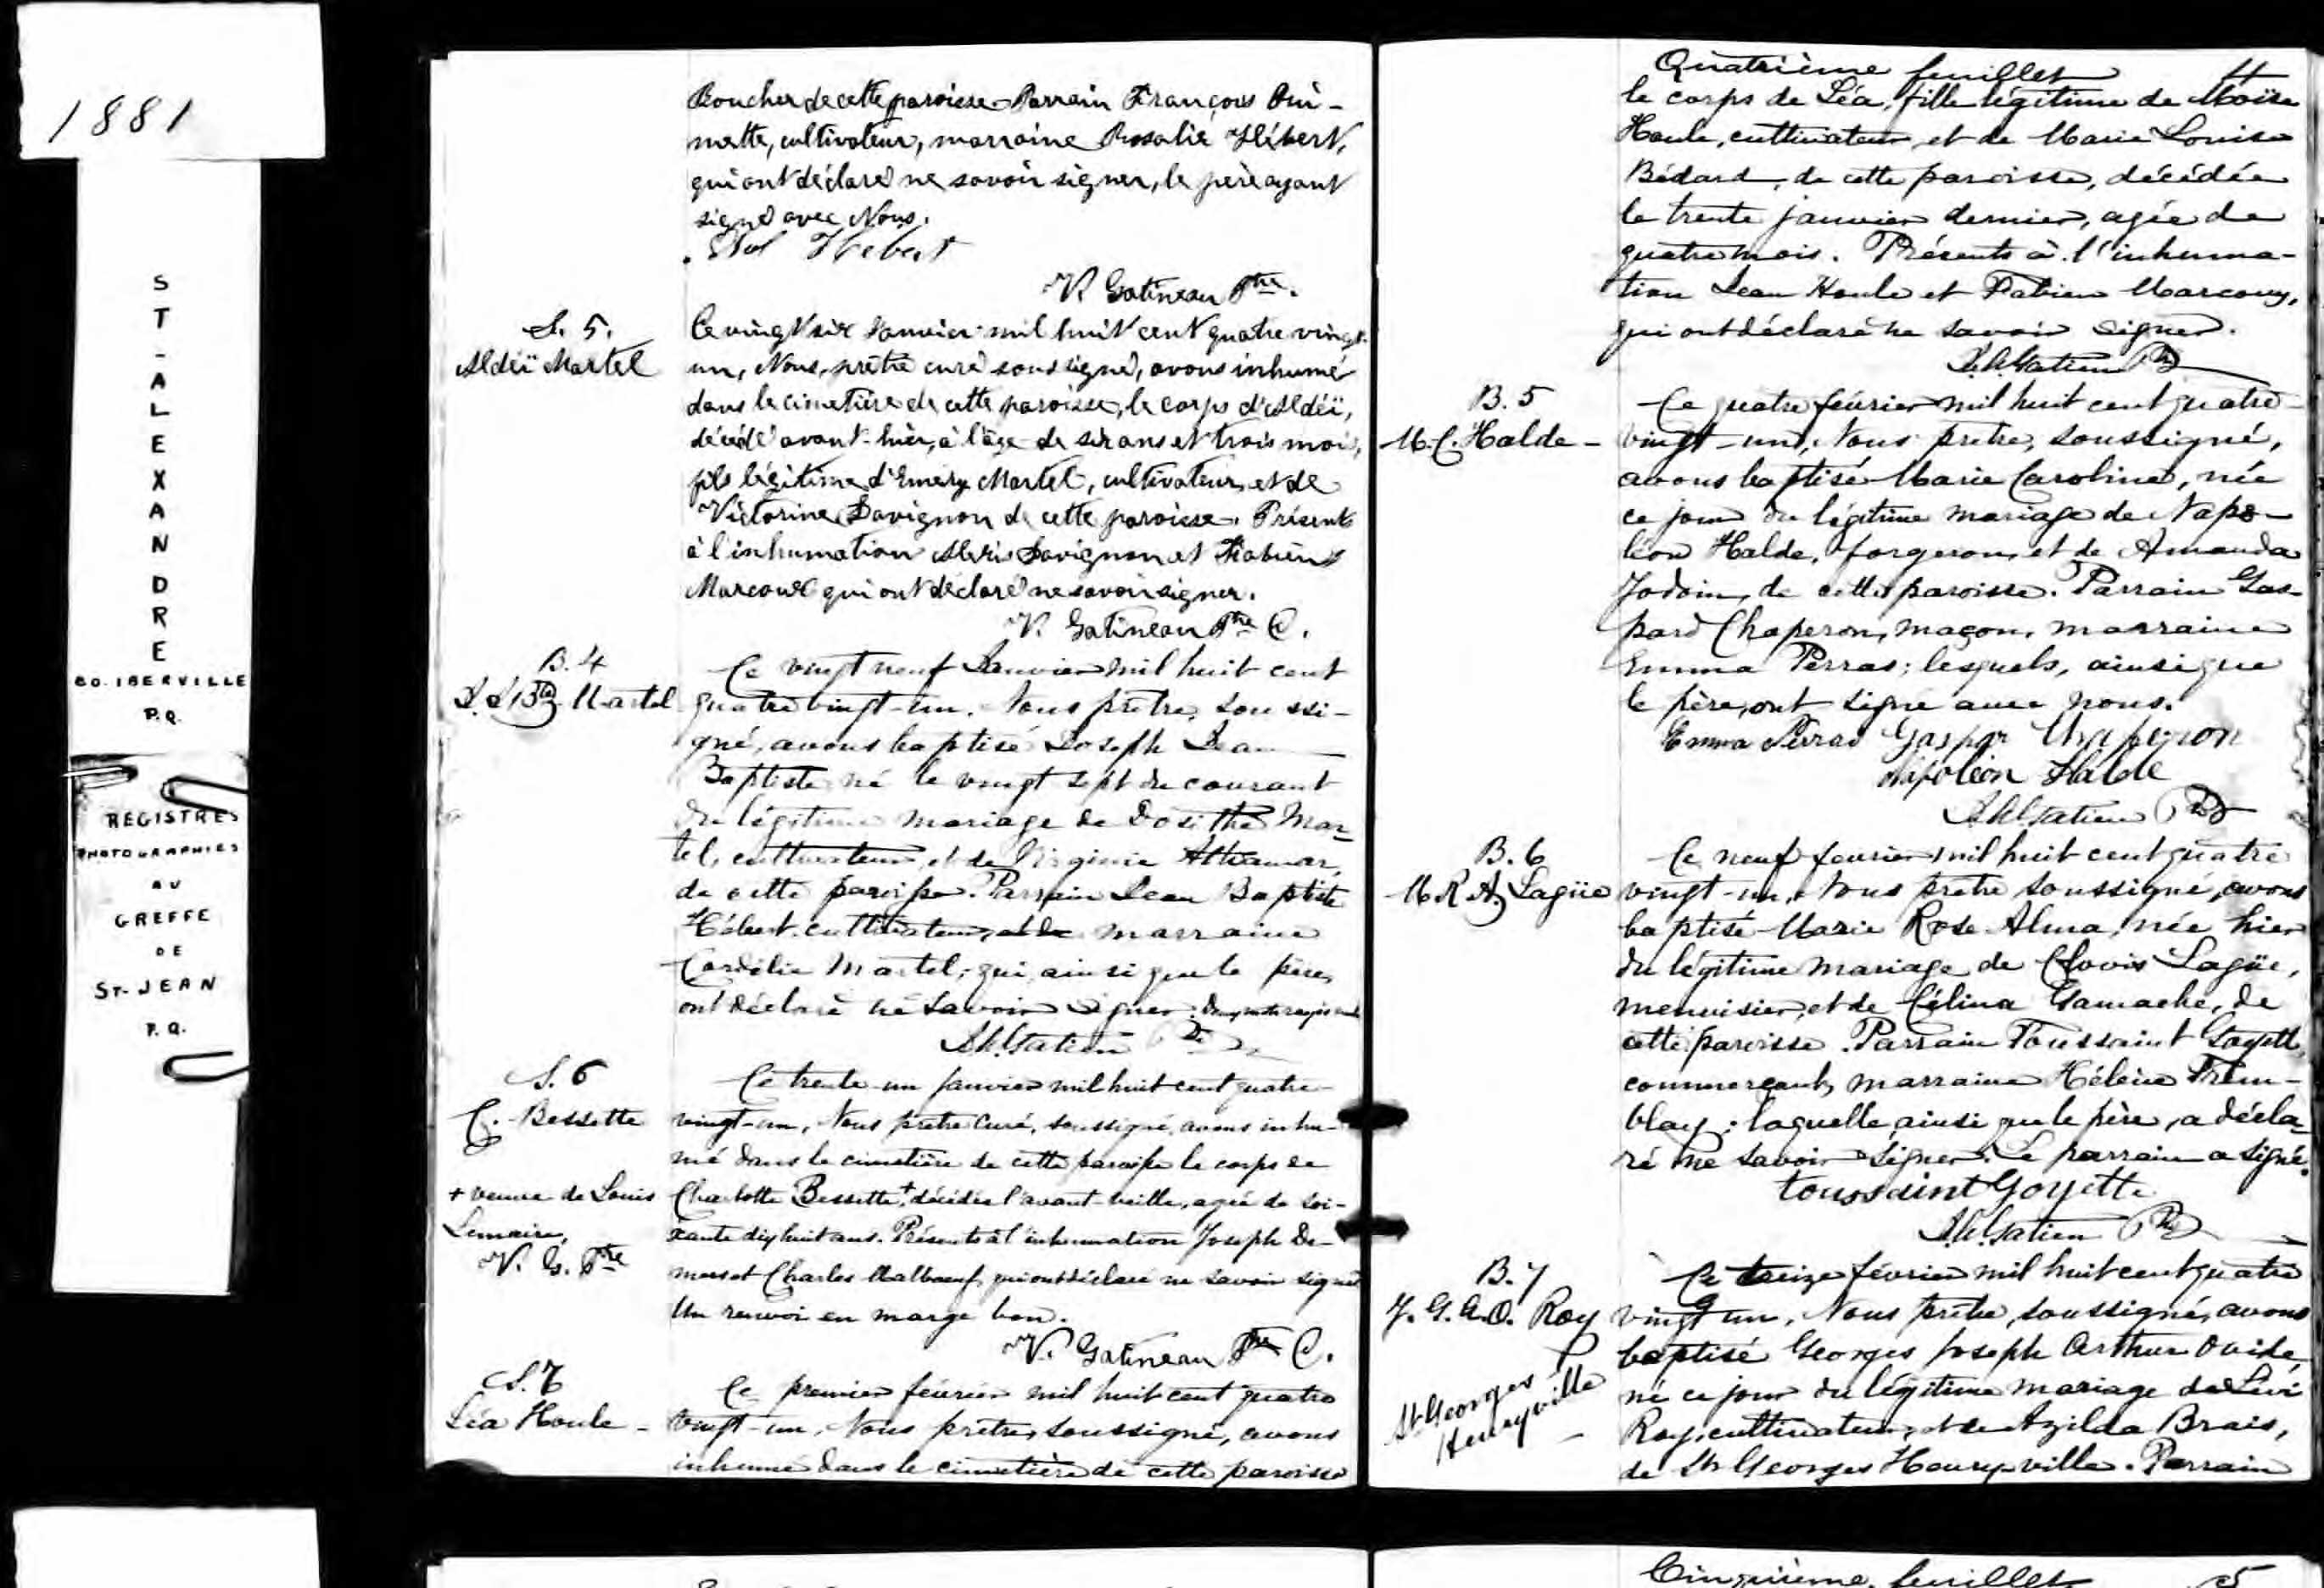 1881
ST-ALEXANDRE
CO. IBERVILLE
P.Q.
REGISTRES
PHOTOGRAPHIES
AU
GREFFE
DE
ST-JEAN
P.Q.
Boucher de cette paroisse. Parrain François Oui-
mette, cultivateur, marraine Rosalie Hébert,
qui ont déclaré ne savoir signer, le père ayant
signé avec Nous.
Hebert
V. Gatineau Ptre.
S. 5.
Aldéï Martel
Ce vingt six Janvier mil huit cent quatre vingt-
un, Nous, prêtre curé soussigné, avons inhumé
dans le cimetière de cette paroisse, le corps d'Aldéï,
décédé avant-hier, à l'âge de six ans et trois mois,
fils légitime d'Emery Martel, cultivateur, et de
Victorine Davignon de cette paroisse. Présents
à l'inhumation Alexis Davignon et Fabien
Marcoux qui ont déclaré ne savoir signer.
V. Gatineau Ptre C.
B. 4
J. J. Bte Martel
Ce vingt neuf Janvier mil huit cent
quatre vingt-un, Nous prêtre, soussi-
gné, avons baptisé Joseph Jean
Baptiste né le vingt sept du courant
du légitime mariage de Dosithé Mar-
tel, cultivateur, et de Virginie
de cette paroisse. Parrain Jean Baptiste
Hébert, cultivateur, et de marraine
Cordélie Martel, qui, ainsi que le père,
ont déclaré ne savoir signer.
Ptre
S. 6
C. Bessette
Ce trente-un janvier mil huit cent quatre-
vingt-un, Nous prêtre curé, soussigné, avons inhu-
mé dans le cimetière de cette paroisse le corps de
+ veuve de Louis
Lemaire,
V. G. Ptre
Charlotte Bessette,+ décédée l'avant-veille, agée de soi-
xante dix huit ans. Présents à l'inhumation Joseph De-
mers et Charles Malboeuf, qui ont déclaré ne savoir signer
Un renvoi en marge bon.
V. Gatineau Ptre C.
S. 7
Léa Houle -
Ce premier février mil huit cent quatre
vingt-un, Nous prêtre, soussigné, avons
inhumé dans le cimetière de cette paroisse
Quatrième feuillet 4
le corps de Léa, fille légitime de Moïse
Houle, cultivateur, et de Marie Louise
Bédard, de cette paroisse, décédée
le trente janvier dernier, agée de
quatre mois. Présents à l'inhuma-
tion Jean Houle et Fabien Marcoux,
qui ont déclaré ne savoir signer.
Ptre
B. 5
M. C. Halde -
Ce quatre février mil huit cent quatre-
vingt-un, Nous prêtre, soussigné,
avons baptisé Marie Caroline, née
ce jour du légitime mariage de Napo-
léon Halde, forgeron, et de Amanda
Jodoin, de cette paroisse. Parrain Gas-
pard Chaperon, maçon, marraine
Emma Perras; lesquels, ainsi que
le père, ont signé avec nous.
Emma Perras Gaspar Chaperon
Napoléon Halde
Ptre
B. 6
M. R. A. Lagüe
Ce neuf février mil huit cent quatre
vingt-un, Nous prêtre soussigné, avons
baptisé Marie Rose Alma, née hier
du légitime mariage de Clovis Lagüe,
menuisier, et de Célina Gamache, de
cette paroisse. Parrain Toussaint Goyette,
commerçant, marraine Hélène Trem-
blay; laquelle, ainsi que le père, a décla-
ré ne savoir signer. Le parrain a signé.
toussaint Goyette
Ptre
B. 7
J. G. A. O. Roy
St Georges
Henryville
Ce treize février mil huit cent quatre
vingt un, Nous prêtre, soussigné, avons
baptisé Georges Joseph Arthur Ovide,
né ce jour du légitime mariage de Lévi
Roy, cultivateur, et de Azilda Brais,
de St Georges Henryville. Parrain
Cinquième feuillet 5